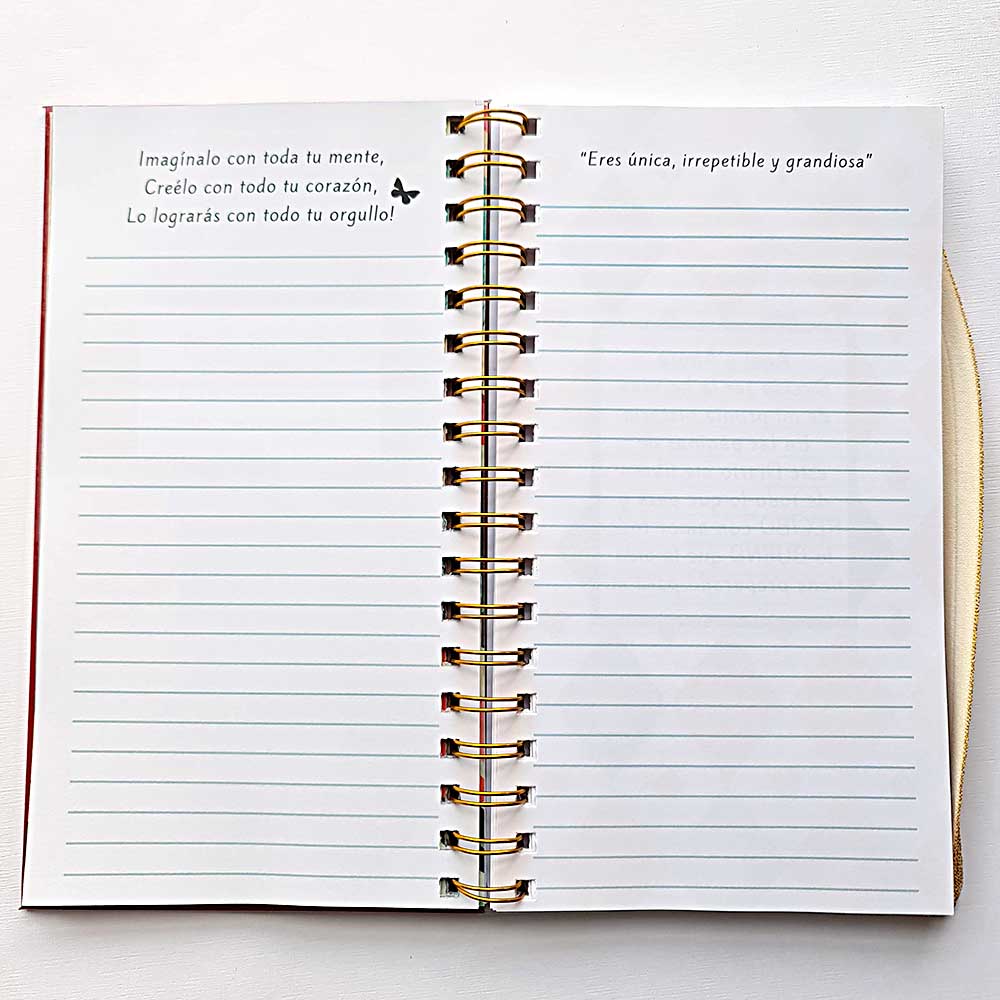 Imagínalo con toda tu mente,
Creélo con todo tu corazón,
Lo lograrás con todo tu orgullo!
"Eres única, irrepetible y grandiosa"